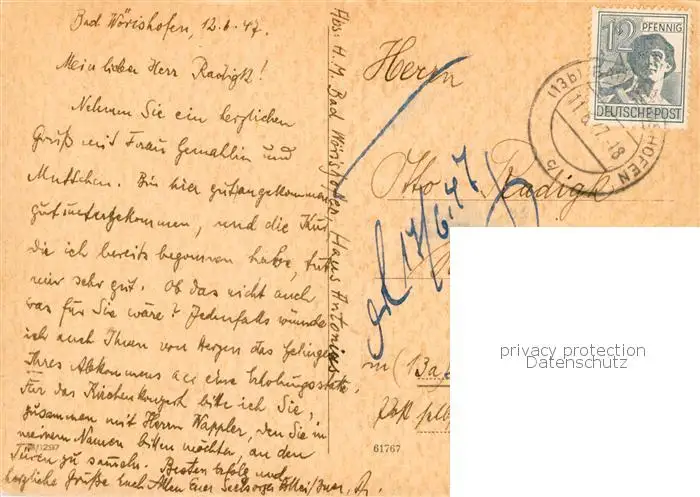 Bad Wörishofen, 12.6.47.
Mein lieber Herr Radigk!
Nehmen Sie ein herzlichen
Gruß mit Frau Gemahlin und
Mutschen. Bin hier gut angekommen
gut untergekommen, und die Kur
die ich bereits begonnen habe, tut
mir sehr gut. Ob das nicht auch
was für Sie wäre? Jedenfalls wünsche
ich auch Ihnen von Herzen das Gelingen
Ihres Abkommens an eine Erholungsstätte.
Für das Kirchenkonzert bitte ich Sie,
zusammen mit Herrn Wappler, den Sie in
meinem Namen bitten möchten, an den
Türen zu sammeln. Besten Erfolg und
herzliche Grüße Euch Allen Euer Seelsorger
Abs: H. M. Bad Wörishofen Haus Antonius
Herrn
Otto Radigk
17/6.47
in (13a)
61767
12 PFENNIG
DEUTSCHE POST
(13b)
11.6.47.-18
HOFEN
privacy protection
Datenschutz